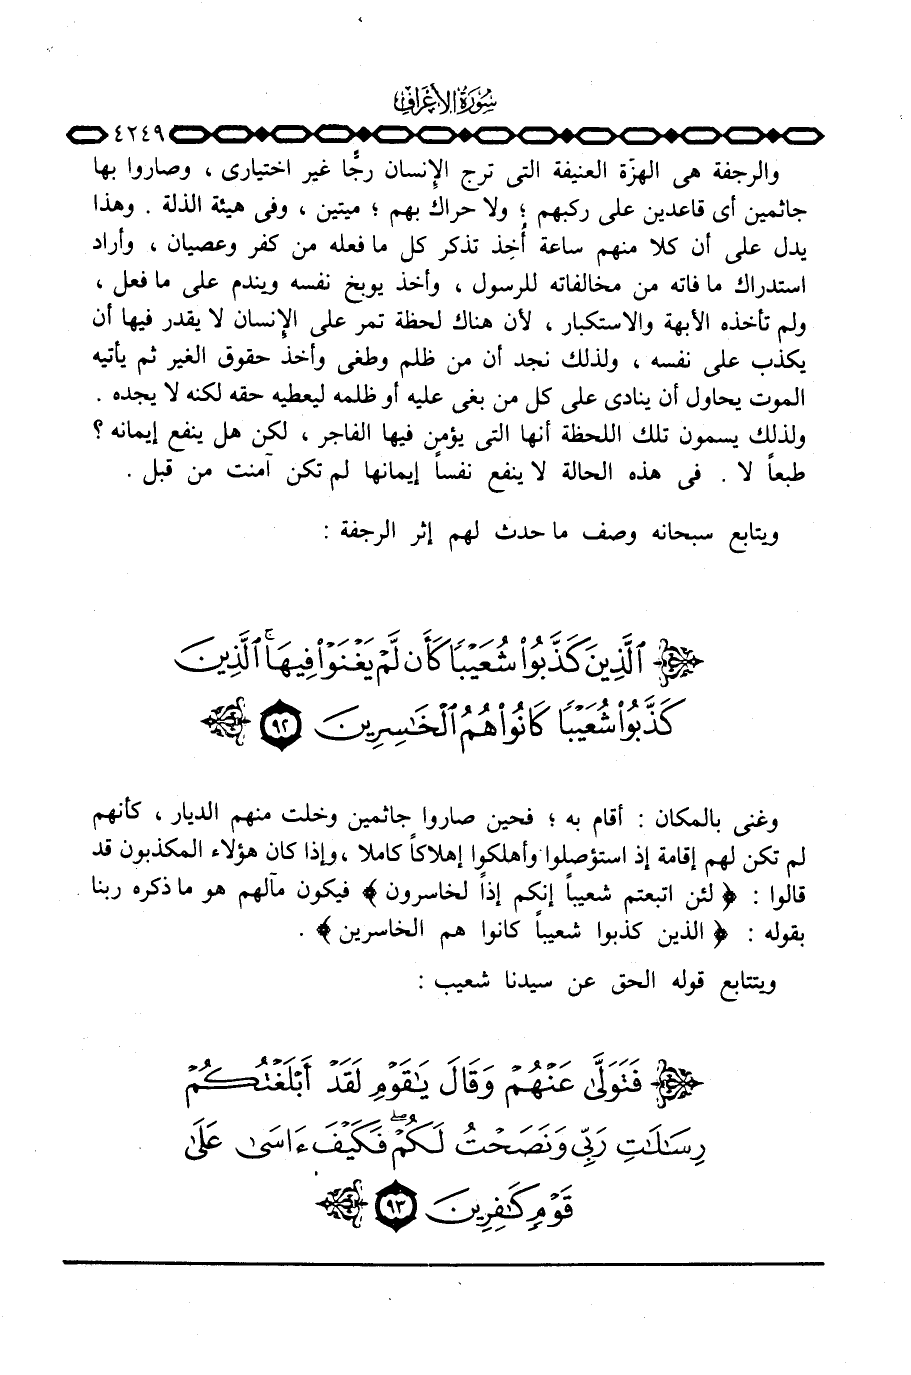 سُورَةُ الأَعْرَافِ
٤٢٤٩
والرجفة هى الهزّة العنيفة التى ترج الإنسان رجًّا غير اختيارى ، وصاروا بها
جاثمين أى قاعدين على ركبهم ؛ ولا حراك بهم ؛ ميتين ، وفى هيئة الذلة . وهذا
يدل على أن كلا منهم ساعة أُخِذ تذكر كل ما فعله من كفر وعصيان ، وأراد
استدراك ما فاته من مخالفاته للرسول ، وأخذ يوبخ نفسه ويندم على ما فعل ،
ولم تأخذه الأبهة والاستكبار ، لأن هناك لحظة تمر على الإنسان لا يقدر فيها أن
يكذب على نفسه ، ولذلك نجد أن من ظلم وطغى وأخذ حقوق الغير ثم يأتيه
الموت يحاول أن ينادى على كل من بغى عليه أو ظلمه ليعطيه حقه لكنه لا يجده .
ولذلك يسمون تلك اللحظة أنها التى يؤمن فيها الفاجر ، لكن هل ينفع إيمانه ؟
طبعاً لا . فى هذه الحالة لا ينفع نفساً إيمانها لم تكن آمنت من قبل .
ويتابع سبحانه وصف ما حدث لهم إثر الرجفة :
ٱلَّذِينَ كَذَّبُوا۟ شُعَيْبًا كَأَن لَّمْ يَغْنَوْا۟ فِيهَا ۚ ٱلَّذِينَ
كَذَّبُوا۟ شُعَيْبًا كَانُوا۟ هُمُ ٱلْخَـٰسِرِينَ ٩٢
وغنى بالمكان : أقام به ؛ فحين صاروا جاثمين وخلت منهم الديار ، كأنهم
لم تكن لهم إقامة إذ استؤصلوا وأهلكوا إهلاكاً كاملا ، وإذا كان هؤلاء المكذبون قد
قالوا : ﴿ لئن اتبعتم شعيباً إنكم إذاً لخاسرون ﴾ فيكون مآلهم هو ما ذكره ربنا
بقوله : ﴿ الذين كذبوا شعيباً كانوا هم الخاسرين ﴾ .
ويتتابع قوله الحق عن سيدنا شعيب :
فَتَوَلَّىٰ عَنْهُمْ وَقَالَ يَـٰقَوْمِ لَقَدْ أَبْلَغْتُكُمْ
رِسَـٰلَـٰتِ رَبِّى وَنَصَحْتُ لَكُمْ ۖ فَكَيْفَ ءَاسَىٰ عَلَىٰ
قَوْمٍ كَـٰفِرِينَ ٩٣